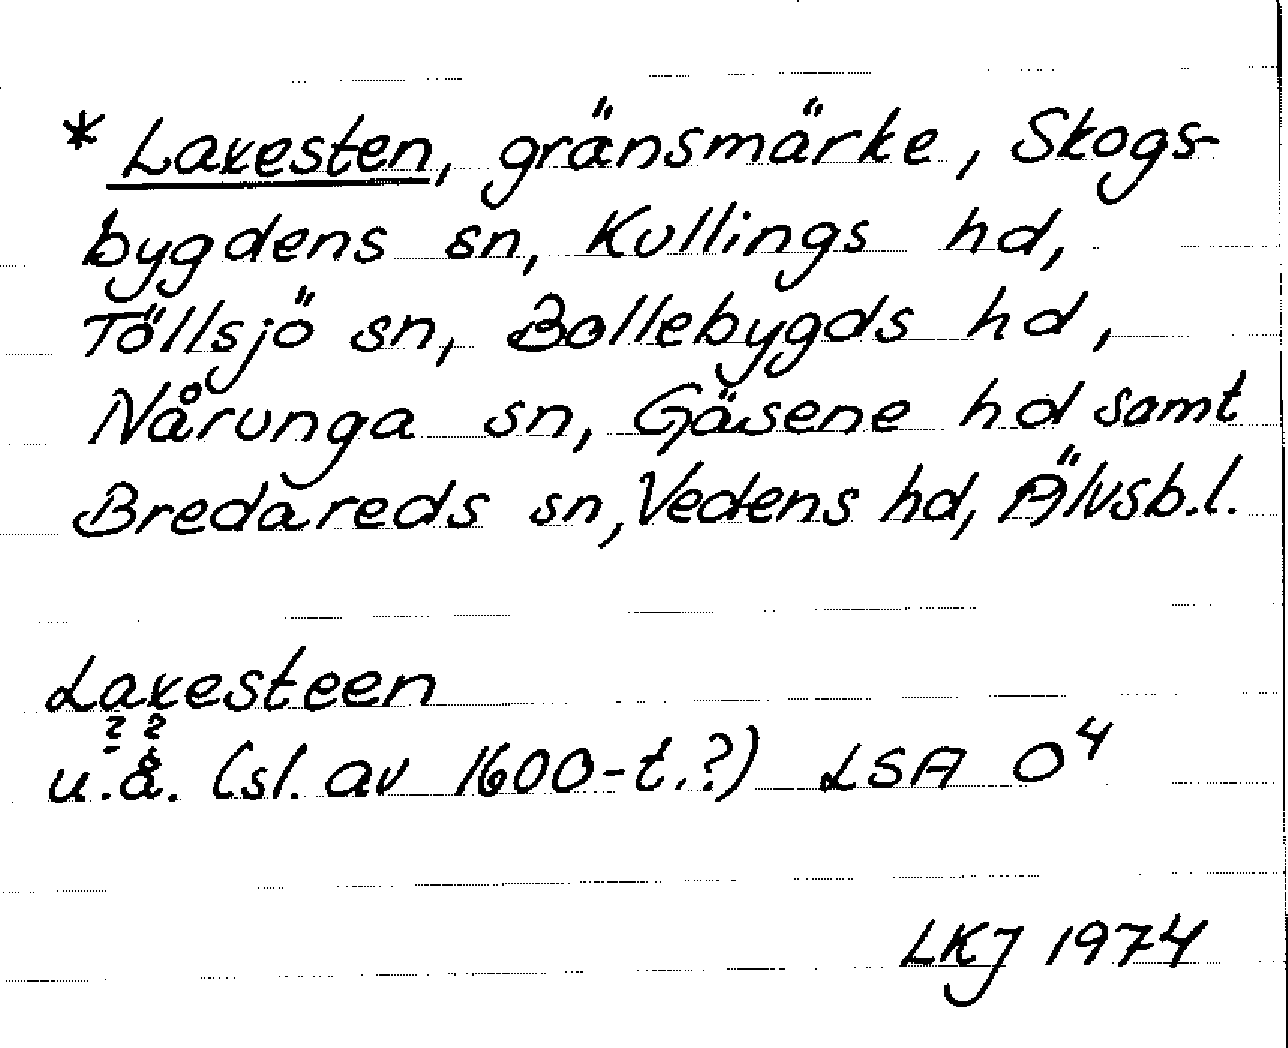 * Laxesten, gränsmärke, Skogs-
bygdens sn, Kullings hd,
Töllsjö sn, Bollebygds hd,
Nårunga sn, Gäsene hd samt
Bredareds sn, Vedens hd, Älvsb.l.
Laxesteen
? ?
u.å. (sl. av 1600-t.?) LSA O⁴
LKJ 1974